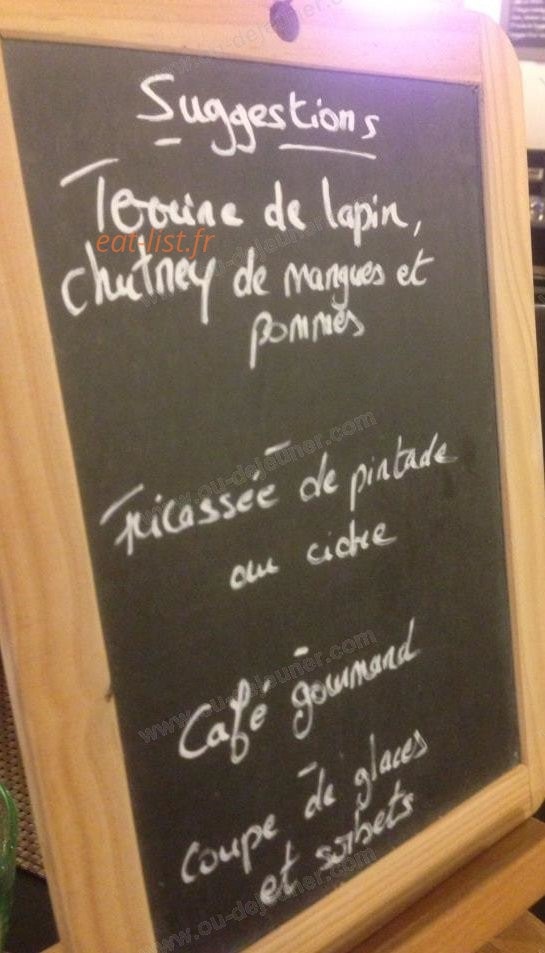 Suggestions
Terrine de lapin,
eat-list.fr
chutney de mangues et
pommes
Fricassée de pintade
au cidre
Café gourmand
coupe de glaces
et sorbets
www.ou-dejeuner.com
www.ou-dejeuner.com
www.ou-dejeuner.com
www.ou-dejeuner.com
www.ou-dejeuner.com